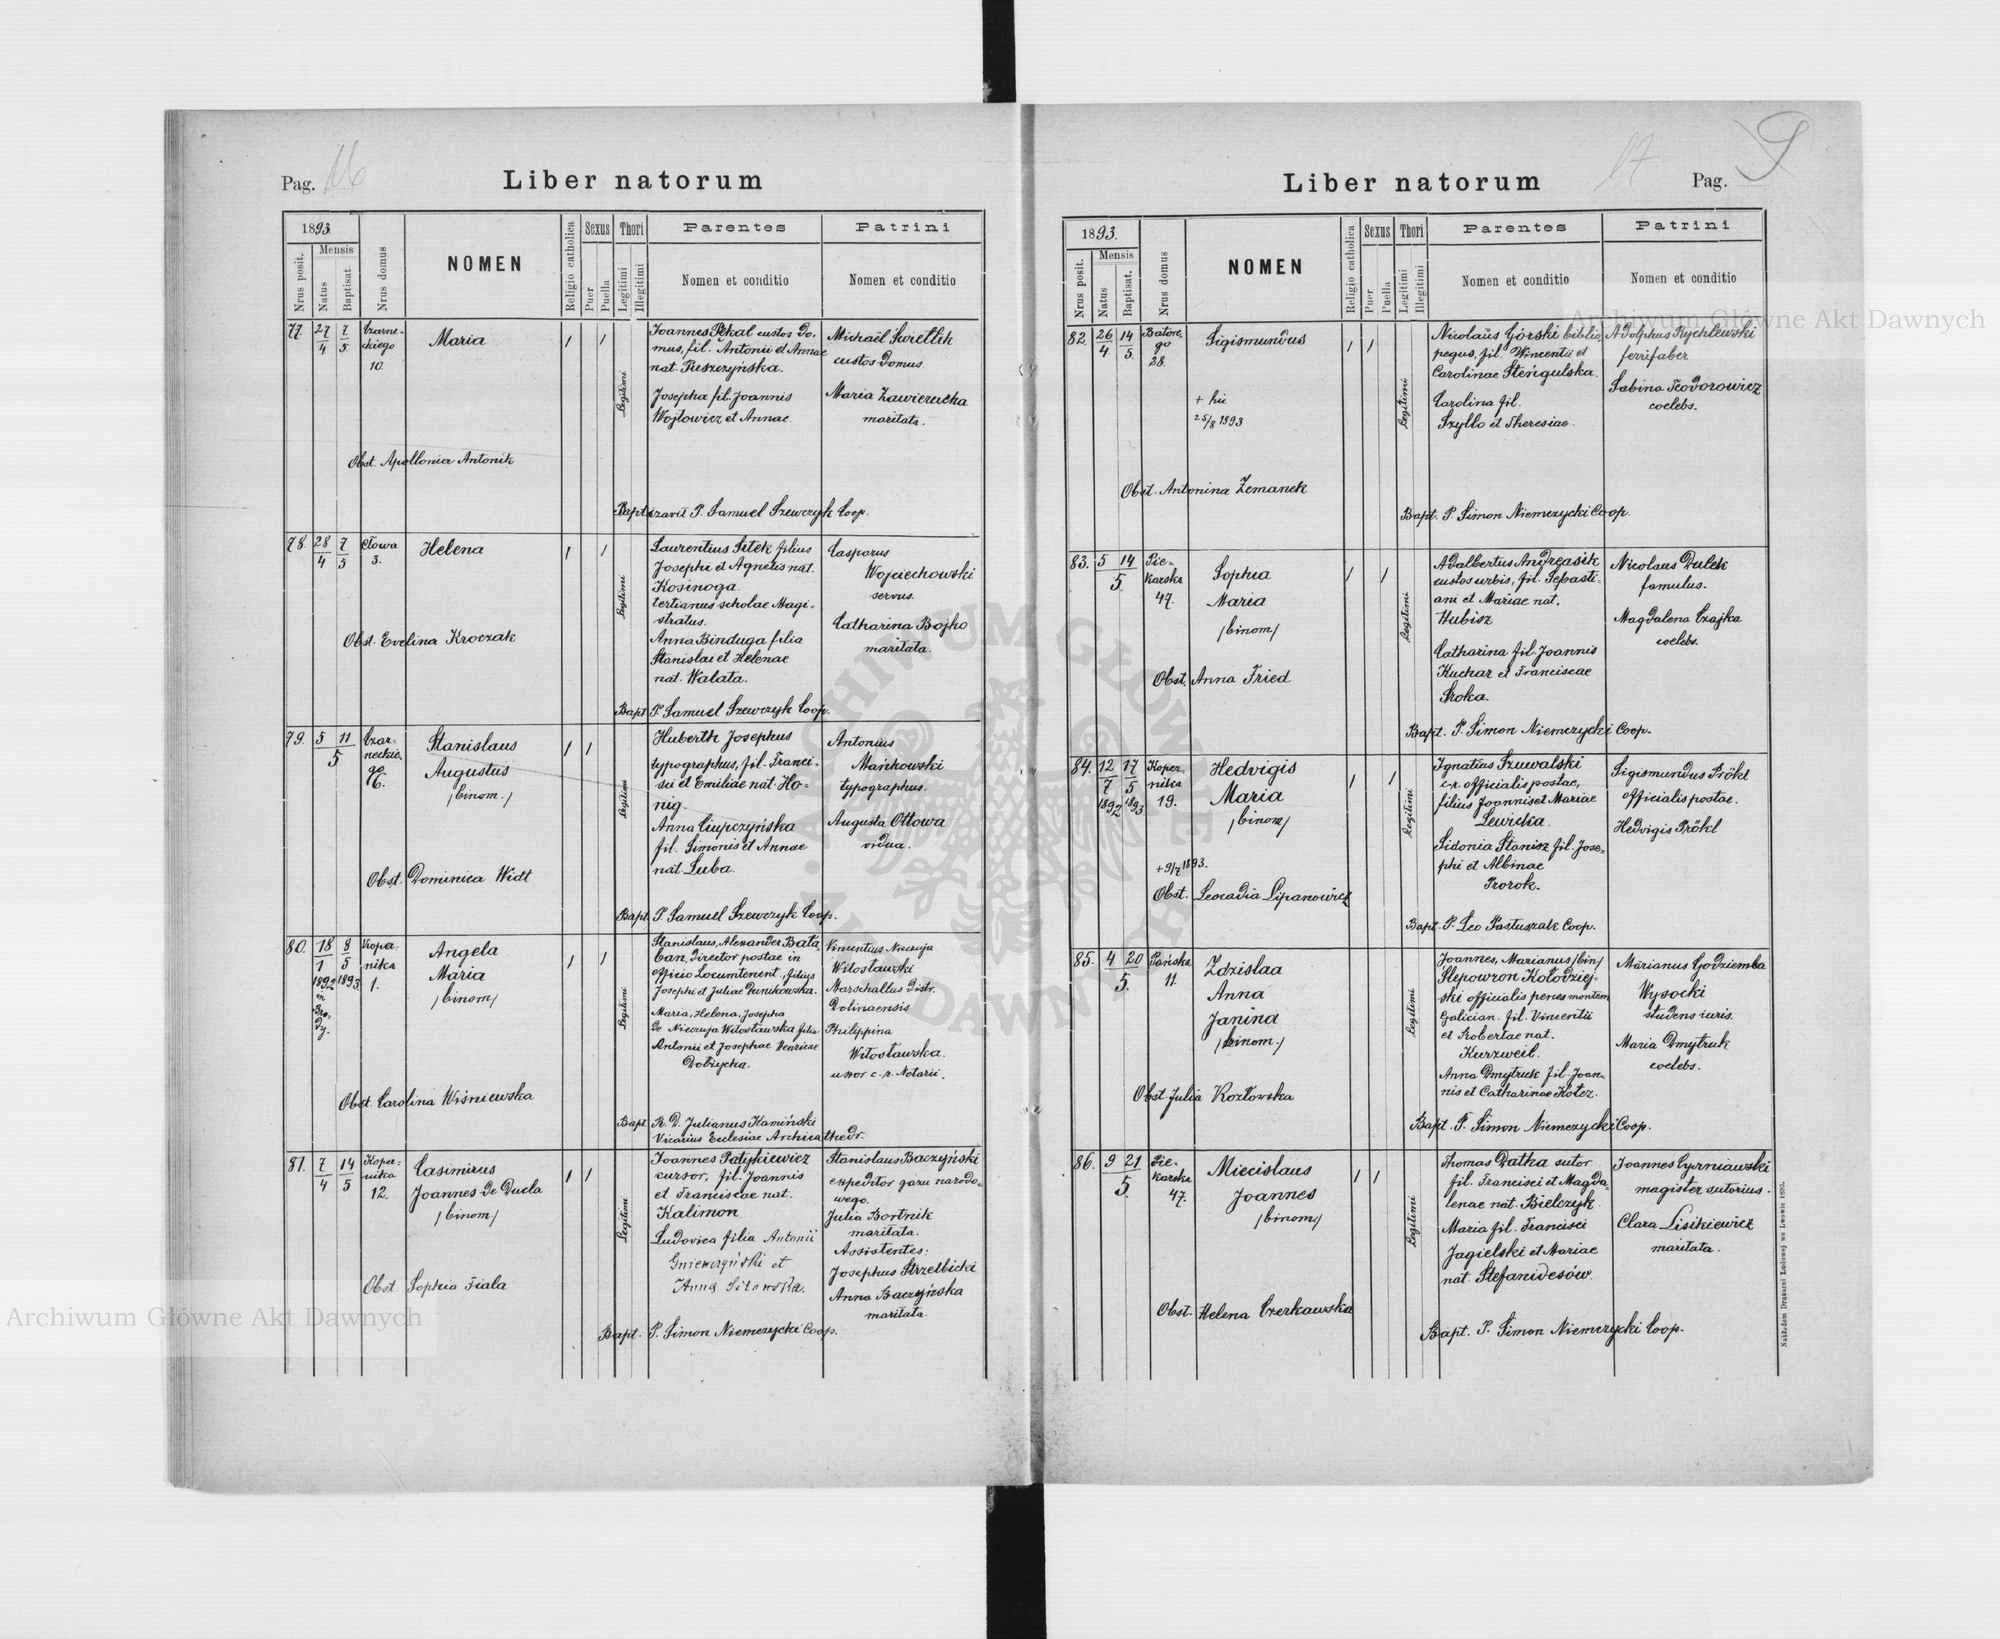 Pag. 16
Liber natorum
1893
Nrus posit.
Mensis
Natus
Baptisat.
Nrus domus
NOMEN
Religio catholica
Sexus
Puer
Puella
Thori
Legitimi
Illegitimi
Parentes
Nomen et conditio
Patrini
Nomen et conditio
77.
27/4
7/5
Czarne-
ckiego
10.
Maria
Obst. Apollonia Antonik
Legitimi
Joannes Pękal custos do-
mus, fil. Antonii et Annae
nat. Puszczyńska.
Josepha fil. Joannis
Wojtowicz et Annae
Michaël Swietlik
custos domus
Maria Zawierucka
maritata.
Baptizavit P. Samuel Szewczyk Coop.
78.
28/4
7/5
Cłowa
3.
Helena
Obst. Evelina Kroczak
Legitimi
Laurentius Sitek filius
Josephi et Agnetis nat.
Kosinoga
tertianus scholae Magi-
stratus.
Anna Binduga filia
Stanislai et Helenae
nat. Walata.
Casparus
Wojciechowski
servus.
Catharina Bojko
maritata.
Bapt. P. Samuel Szewczyk Coop.
79.
5 11
5
Czar-
neckie-
go
Stanislaus
Augustus
/binom./
Obst. Dominica Widt
Legitimi
Huberth Josephus
typographus, fil. Franci-
sci et Emiliae nat. Ho-
nig.
Anna Ciupczyńska
fil. Simonis et Annae
nat Luba.
Antonius
Mańkowski
typographus.
Augusta Ottowa
vidua.
Bapt. P. Samuel Szewczyk Coop.
80.
18/1
1892
in
Bro-
dy.
8/5
1893
Koper-
nika
1.
Angela
Maria
/binom/
Obst. Carolina Wiśniewska
Legitimi
Stanislaus, Alexander Bała-
ban, Director postae in
officio Locumtenent., filius
Josephi et Juliae Dunikowska.
Maria, Helena, Josepha
de Nieczuja Witosławska filia
Antonii et Josephae Henricae
Dobrzycka.
Vincentius Nieczuja
Witosławski
Marschallus Distr.
Dolinaensis
Philippina
Witosławska.
uxor c. r. Notarii.
Bapt. R. D. Julianus Kamiński
Vicarius Ecclesiae Archicathedr.
81.
7/4
14/5
Koper-
nika
12.
Casimirus
Joannes de Ducla
/binom/
Obst. Sophia Fiala
Legitimi
Joannes Patykiewicz
cursor, fil. Joannis
et Franciscae nat.
Kalimon
Ludovica filia Antonii
Gniewczyński et
Stanislaus Baczyński
expeditor gazu narodo-
wego.
Julia Bortnik
maritata.
Assistentes:
Josephus Strzelbicki
Anna Baczyńska
maritata.
Bapt. P. Simon Niemczycki Coop.
Liber natorum
17
Pag. 9
1893.
Nrus posit.
Mensis
Natus
Baptisat.
Nrus domus
NOMEN
Religio catholica
Sexus
Puer
Puella
Thori
Legitimi
Illegitimi
Parentes
Nomen et conditio
Patrini
Nomen et conditio
82.
26/4.
14/5.
Batore-
go
28.
Sigismundus
+ hic
25/8 1893
Obst. Antonina Zemanek
Legitimi
Nicolaus Górski biblio-
pegus, fil. Vincentii et
Carolinae Stengulska.
Carolina fil.
Szyllo et Theresiae.
Adolphus Rychlewski
ferrifaber
Sabina Teodorowicz
coelebs.
Bapt. P. Simon Niemczycki Coop.
83.
5 14
5.
Pie-
karska
47.
Sophia
Maria
/binom/
Obst. Anna Fried
Legitimi
Adalbertus Andreasik
custos urbis, fil. Sebasti-
ani et Mariae nat.
Hubisz
Catharina fil. Joannis
Kuchar et Franciscae
Sroka.
Nicolaus Dulek
famulus.
Magdalena Czajka
coelebs.
Bapt. P. Simon Niemczycki Coop.
84.
12/7
1892
17/5
1893
Koper-
nika
19.
Hedvigis
Maria
/binom/
+ 9/7 1893.
Obst. Leocadia Lipanowicz
Legitimi
Ignatius Szuwalski
c. r. officialis postae,
filius Joannis et Mariae
Lewicka.
Sidonia Stanisz fil. Jose-
phi et Albinae
Prorok.
Sigismundus Prökl
officialis postae.
Hedvigis Prökl
Bapt. P. Leo Pastuszak Coop.
85.
4 20
5.
Pańska
11.
Zdzislaa
Anna
Janina
/binom./
Obst. Julia Kozłowska
Legitimi
Joannes, Marianus /bin/
Slepowron Kołodziej-
ski officialis penes montem
Galician. fil. Vincentii
et Robertae nat.
Kurzweil.
Anna Dmytruk fil. Joan-
nis et Catharinae Kotez.
Marianus Godziemba
Wysocki
studens iuris.
Maria Dmytruk
coelebs.
Bapt. P. Simon Niemczycki Coop.
86.
9 21
5.
Pie-
karska
47.
Miecislaus
Joannes
/binom/
Obst. Helena Czerkawska
Legitimi
Thomas Datka sutor
fil. Francisci et Magda-
lenae nat. Bielczyk.
Maria fil. Francisci
Jagielski et Mariae
nat. Stefanidesów.
Joannes Cyrniawski
magister sutorius.
Clara Lisikiewicz
maritata.
Bapt. P. Simon Niemczycki Coop.
Nakładem Drukarni Ludowej we Lwowie 1893.
Archiwum Główne Akt Dawnych
Archiwum Główne Akt Dawnych
ARCHIWUM GŁÓWNE AKT DAWNYCH